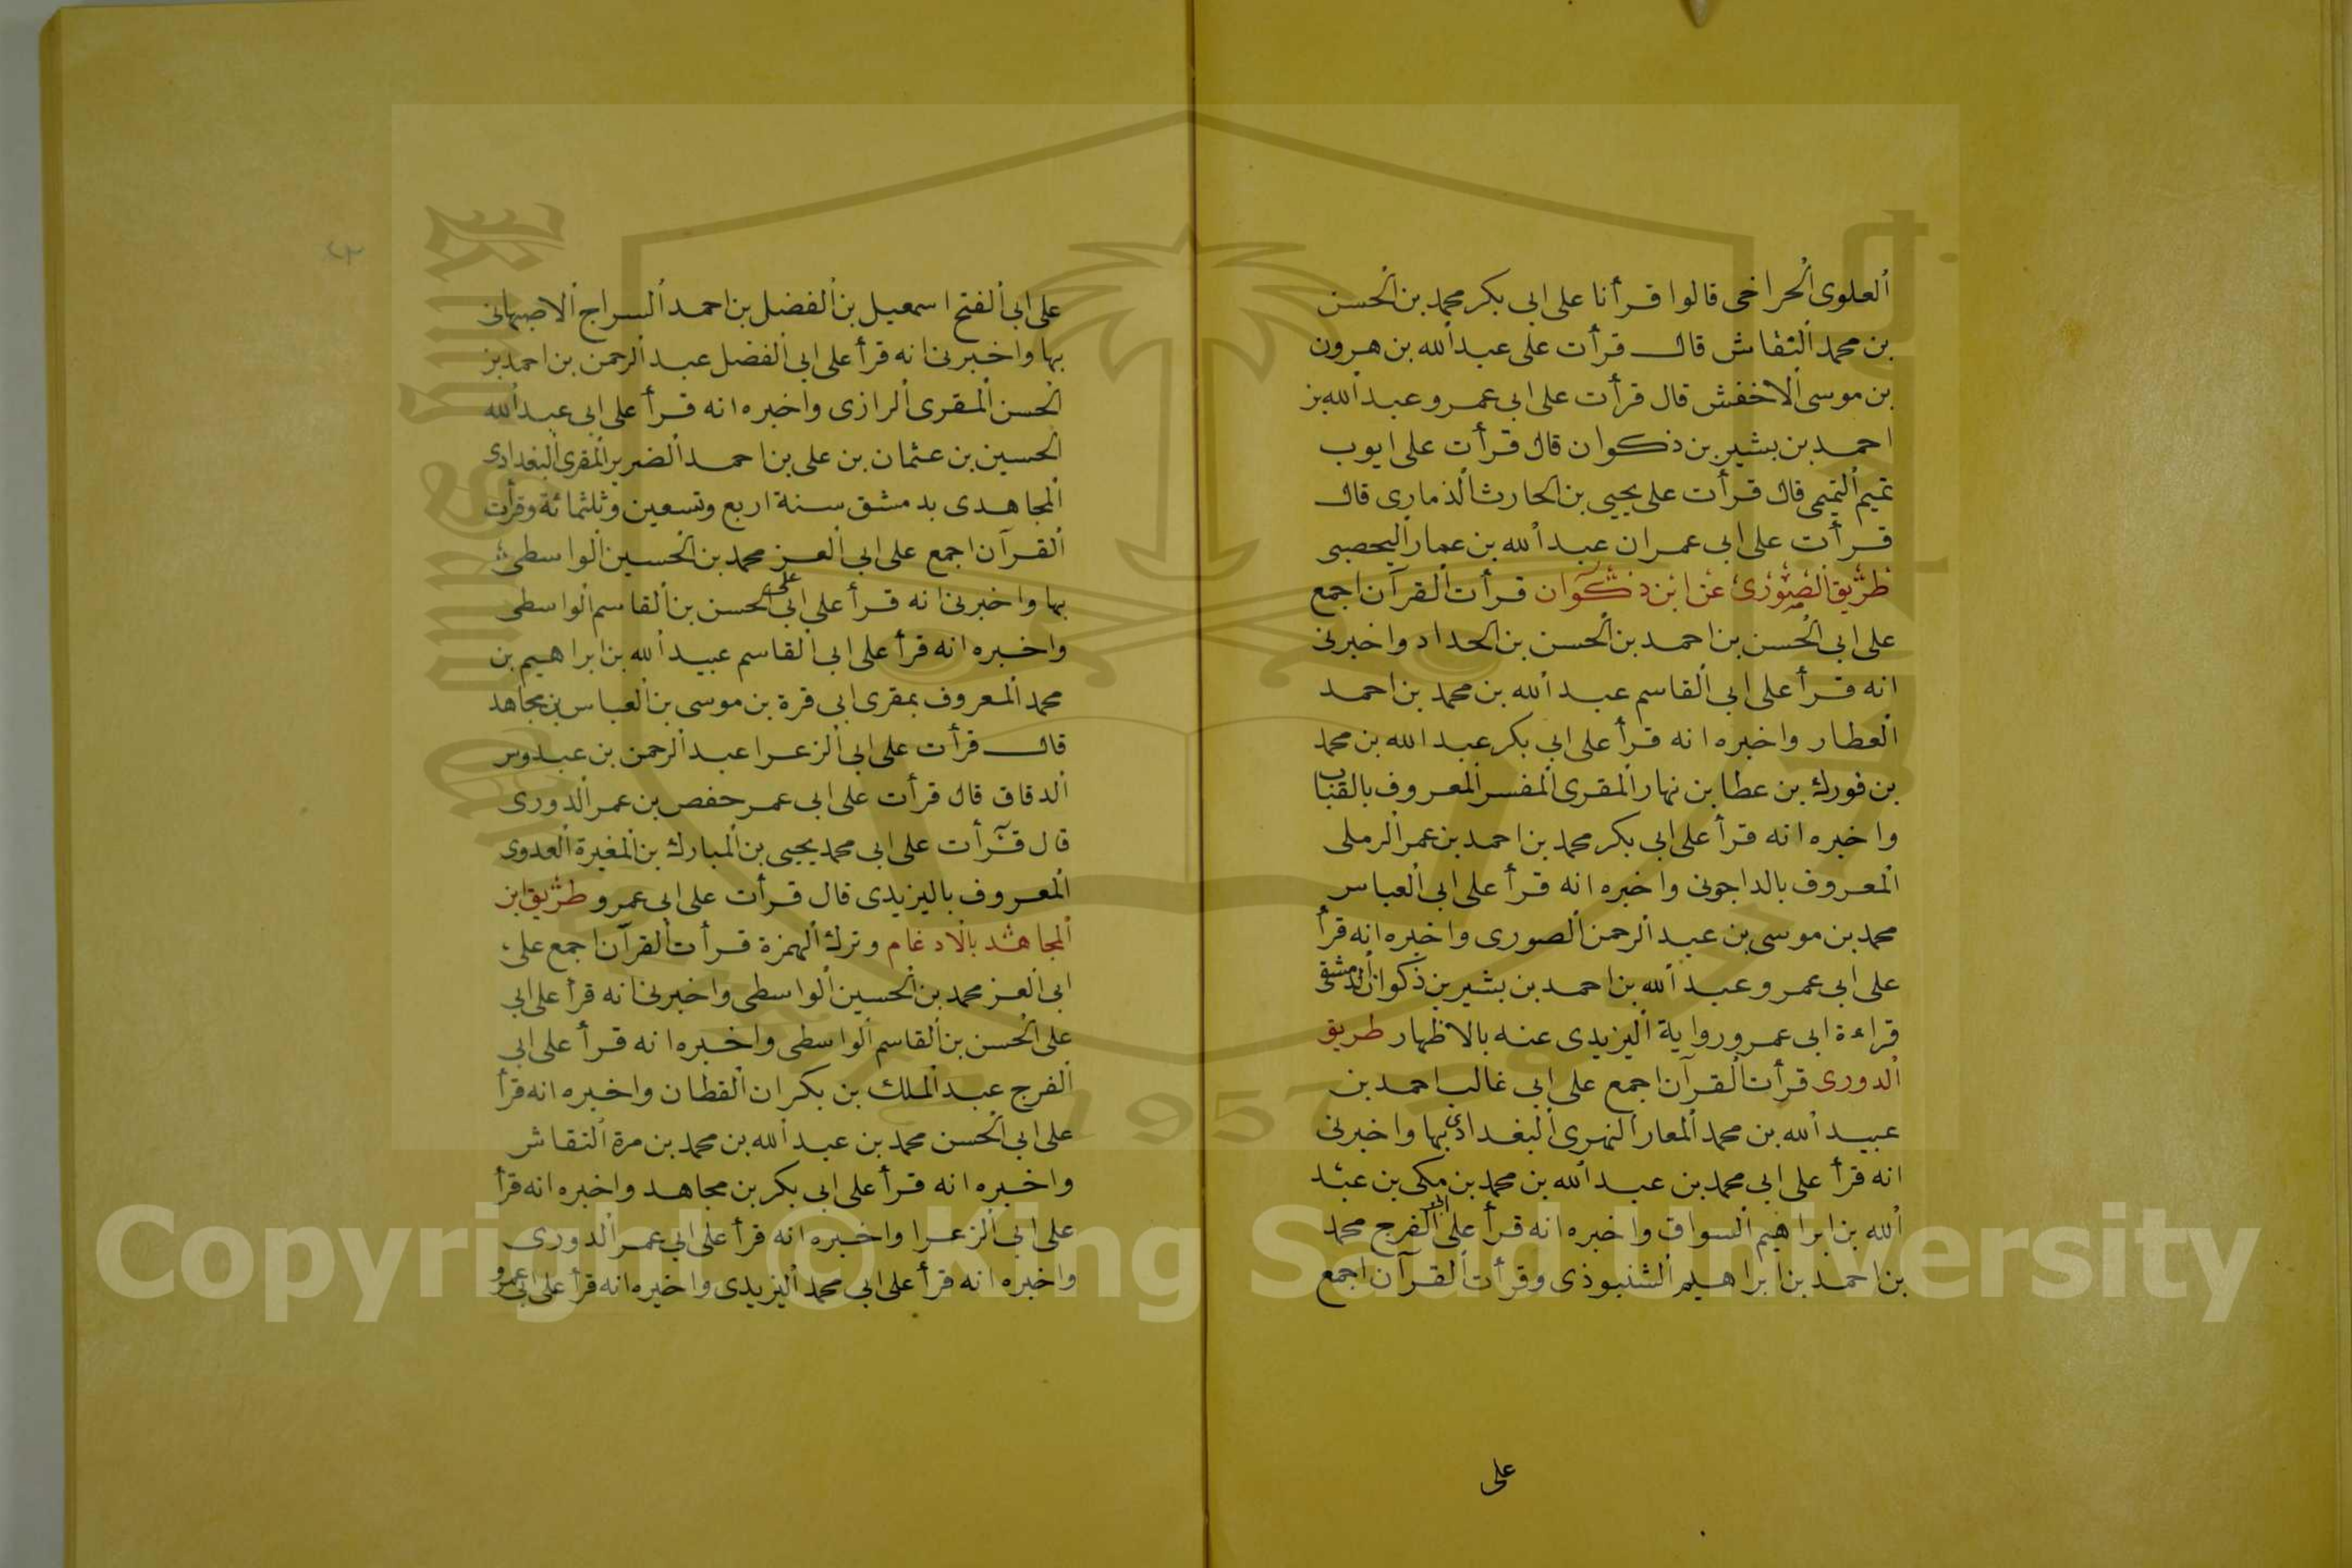 العلوى الحراخى قالوا قرأنا على ابى بكر محمد بن الحسن
بن محمد النقاش قال قرأت على عبد الله بن هرون
بن موسى الاخفش قال قرأت على ابى عمرو عبد الله بن
احمد بن بشير بن ذكوان قال قرأت على ايوب
تميم التيمى قال قرأت على يحيى بن الحارث الذمارى قال
قرأت على ابى عمران عبد الله بن عمار اليحصبى
طريق الصورى عن ابن ذكوان قرأت القرآن اجمع
على ابى الحسن بن احمد بن الحسن بن الحداد واخبرنى
انه قرأ على ابى القاسم عبد الله بن محمد بن احمد
العطار واخبره انه قرأ على ابى بكر عبد الله بن محمد
بن فورك بن عطا بن نهار المقرى المفسر المعروف بالقباب
واخبره انه قرأ على ابى بكر محمد بن احمد بن عمر الرملى
المعروف بالداجونى واخبره انه قرأ على ابى العباس
محمد بن موسى بن عبد الرحمن الصورى واخبره انه قرأ
على ابى عمرو عبد الله بن احمد بن بشير بن ذكوان الدمشقى
قراءة ابى عمرو رواية اليزيدى عنه بالاظهار طريق
الدورى قرأت القرآن اجمع على ابى غالب احمد بن
عبيد الله بن محمد المعار النهرى البغدادى بها واخبرنى
انه قرأ على ابى محمد بن عبد الله بن محمد بن مكى بن عبد
الله بن ابراهيم السواق واخبره انه قرأ على ابى الفرج محمد
بن احمد بن ابراهيم الشنبوذى وقرأت القرآن اجمع
على
على ابى الفتح اسمعيل بن الفضل بن احمد السراج الاصبهانى
بها واخبرنى انه قرأ على ابى الفضل عبد الرحمن بن احمد بن
الحسن المقرى الرازى واخبره انه قرأ على ابى عبد الله
الحسين بن عثمان بن على بن احمد الضرير المقرى البغدادى
المجاهدى بدمشق سنة اربع وتسعين وثلثمائة وقرأت
القرآن اجمع على ابى العز محمد بن الحسين الواسطى
بها واخبرنى انه قرأ على ابى على الحسن بن القاسم الواسطى
واخبره انه قرأ على ابى القاسم عبيد الله بن ابراهيم بن
محمد المعروف بمقرى ابى قرة بن موسى بن العباس بن مجاهد
قال قرأت على ابى الزعرا عبد الرحمن بن عبدوس
الدقاق قال قرأت على ابى عمر حفص بن عمر الدورى
قال قرأت على ابى محمد يحيى بن المبارك بن المغيرة العدوى
المعروف باليزيدى قال قرأت على ابى عمرو طريق ابن
المجاهد بالادغام وترك الهمزة قرأت القرآن اجمع على
ابى العز محمد بن الحسين الواسطى واخبرنى انه قرأ على ابى
على الحسن بن القاسم الواسطى واخبره انه قرأ على ابى
الفرج عبد الملك بن بكران القطان واخبره انه قرأ
على ابى الحسن محمد بن عبد الله بن محمد بن مرة النقاش
واخبره انه قرأ على ابى بكر بن مجاهد واخبره انه قرأ
على ابى الزعرا واخبره انه قرأ على ابى عمر الدورى
واخبره انه قرأ على ابى محمد اليزيدى واخبره انه قرأ على ابى عمرو
Copyright © King Saud University
1957